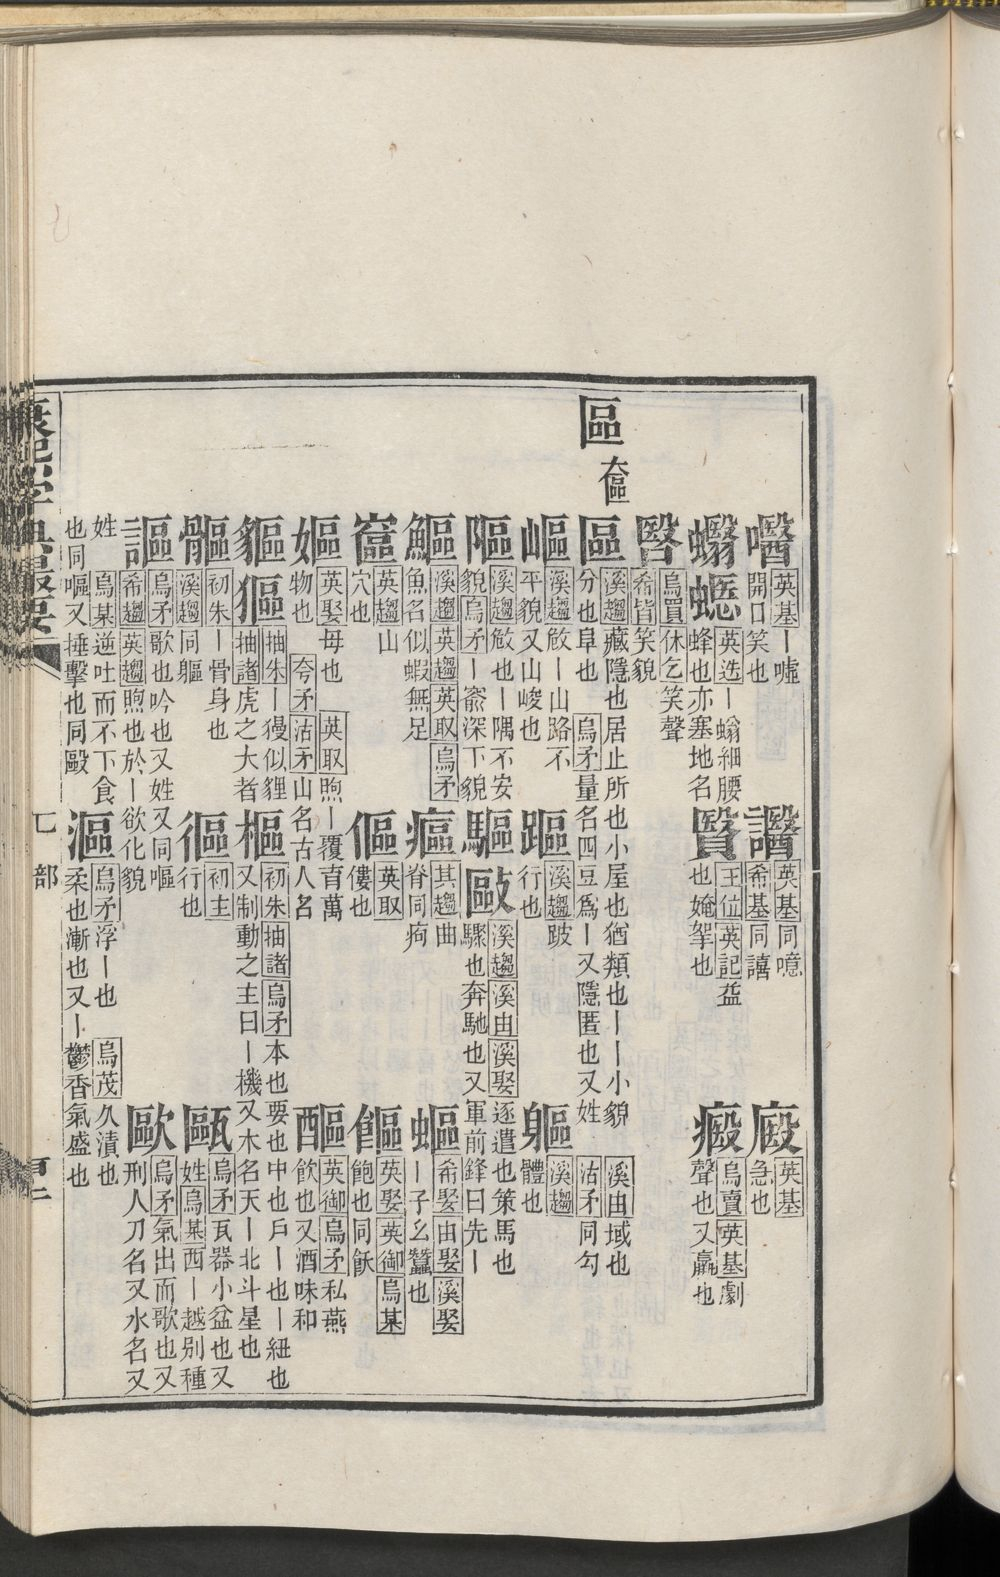 噎 英基丨噓開口笑也
譩 英基希基同噫同譆
英基急也
螉蟌 英迭丨螉細腰蜂也亦塞地名
贀 王位英記益也婗挐也
瘢 烏賣英基劇聲也又羸也
烏買休乞笑聲希皆笑貌
區
區 溪趨藏隱也居止所也小屋也猶類也丨丨小貌 溪由域也分也阜也 烏矛量名四豆爲丨又隱匿也又姓 沽矛同勾
嶇 溪趨敧丨山路不平貌又山峻也
䠓 溪趨跛行也
軀 溪趨體也
陬 溪趨敧也丨隅不安貌烏矛丨窬深下貌
驅敺 溪趨溪由溪娶逐遣也策馬也驟也奔馳也又軍前鋒曰先丨
鰸 溪趨英趨英取烏矛魚名似蝦無足
㽲 其趨曲脊同痀
蓲 希娶由娶溪娶丨子幺蠶也
英趨山穴也
傴 英取僂也
饇 英娶英御烏某飽也同飫
嫗 英娶母也 英取煦丨覆育萬物也 夸矛沽矛山名古人名
醧 英御烏矛私燕飲也又酒味和
貙㺄 抽朱丨獌似狸抽諸虎之大者
樞 初朱抽諸烏矛本也要也中也戶丨也丨紐也又制動之主曰丨機又木名天丨北斗星也
䯾 初朱丨骨身也溪趨同軀
初主行也
甌 烏矛瓦器小盆也又姓烏某西丨越別種
謳 烏矛歌也吟也又姓又同嘔希趨英趨煦也於丨欲化貌
歐 烏矛氣出而歌也又刑人刀名又水名又
姓 烏某逆吐而不下食也同嘔又捶擊也同毆
漚 烏矛浮丨也 烏茂久漬也柔也漸也又丨鬱香氣盛也
康熙字典撮要
匸部